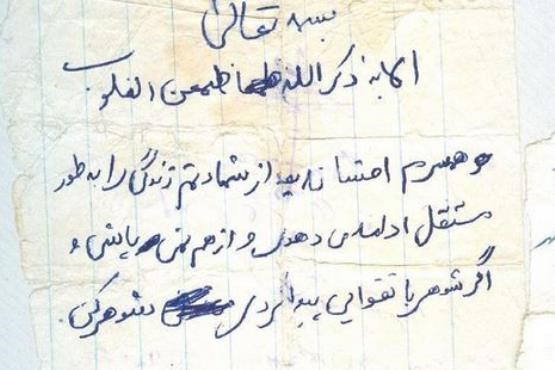 بسمه تعالی
الا بذکر الله تطمعن القلوب
همسرم احتشا بعد از شهادتم زندگی را به طور
مستقل ادامه می دهی و از هم نمی پاشی و
اگر شوهر با تقوایی پیدا کردی شوهر کن.